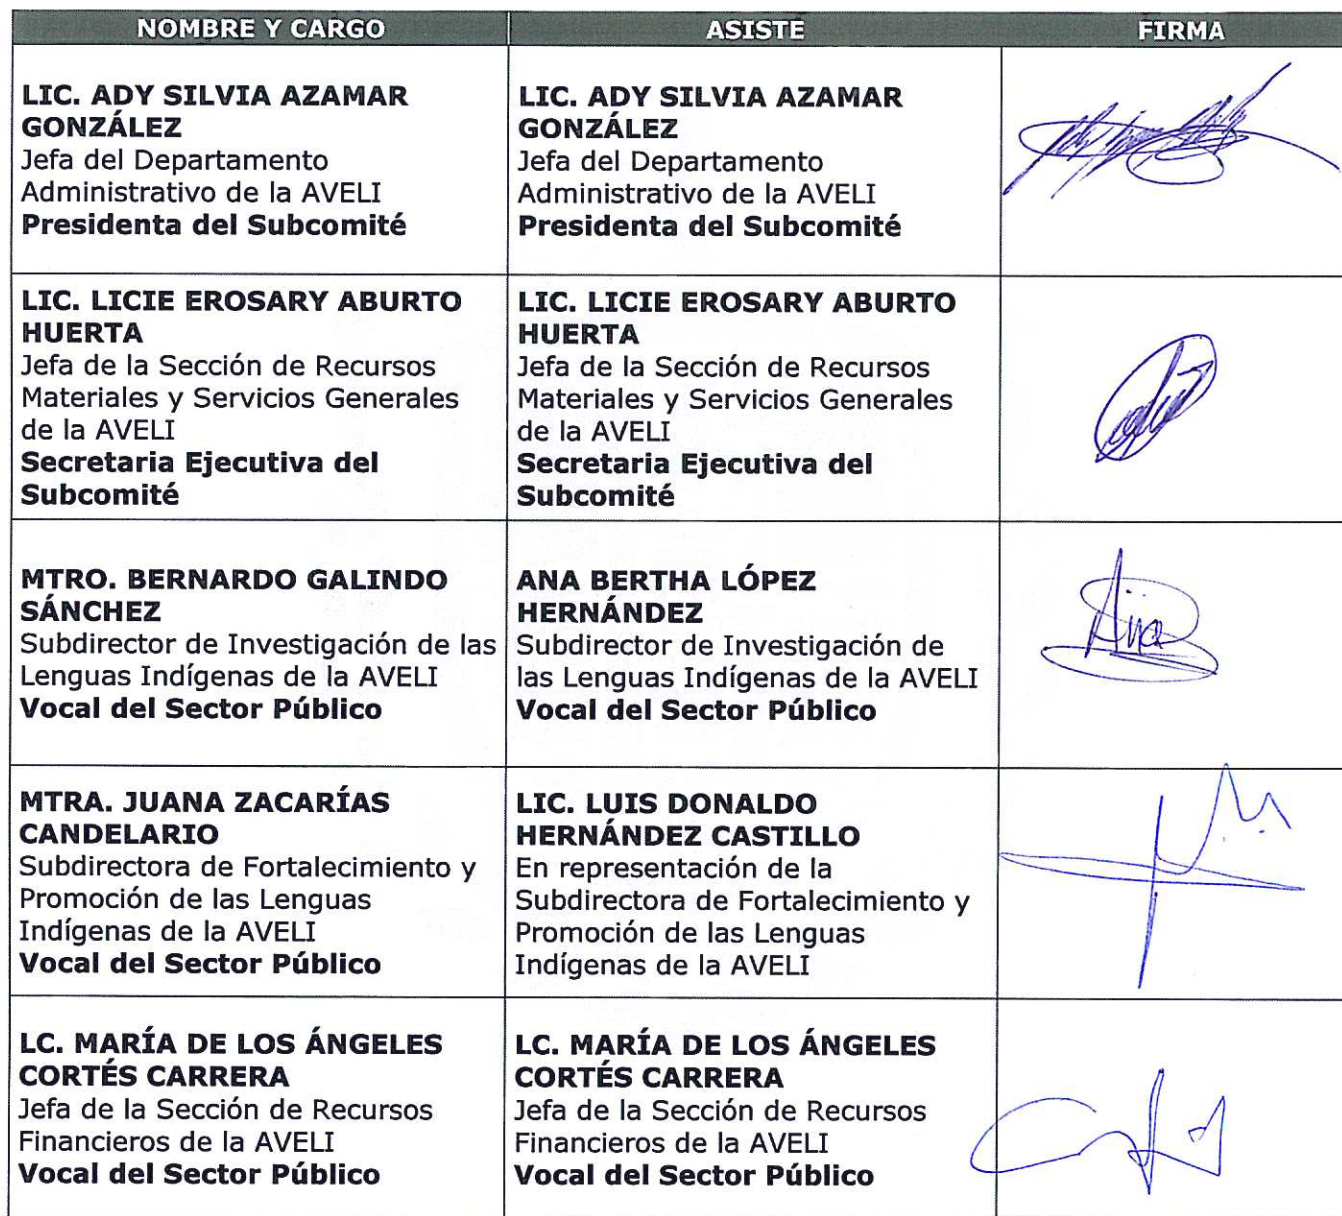 NOMBRE Y CARGO
ASISTE
FIRMA
LIC. ADY SILVIA AZAMAR
GONZÁLEZ
Jefa del Departamento
Administrativo de la AVELI
Presidenta del Subcomité
LIC. ADY SILVIA AZAMAR
GONZÁLEZ
Jefa del Departamento
Administrativo de la AVELI
Presidenta del Subcomité
LIC. LICIE EROSARY ABURTO
HUERTA
Jefa de la Sección de Recursos
Materiales y Servicios Generales
de la AVELI
Secretaria Ejecutiva del
Subcomité
LIC. LICIE EROSARY ABURTO
HUERTA
Jefa de la Sección de Recursos
Materiales y Servicios Generales
de la AVELI
Secretaria Ejecutiva del
Subcomité
MTRO. BERNARDO GALINDO
SÁNCHEZ
Subdirector de Investigación de las
Lenguas Indígenas de la AVELI
Vocal del Sector Público
ANA BERTHA LÓPEZ
HERNÁNDEZ
Subdirector de Investigación de
las Lenguas Indígenas de la AVELI
Vocal del Sector Público
MTRA. JUANA ZACARÍAS
CANDELARIO
Subdirectora de Fortalecimiento y
Promoción de las Lenguas
Indígenas de la AVELI
Vocal del Sector Público
LIC. LUIS DONALDO
HERNÁNDEZ CASTILLO
En representación de la
Subdirectora de Fortalecimiento y
Promoción de las Lenguas
Indígenas de la AVELI
LC. MARÍA DE LOS ÁNGELES
CORTÉS CARRERA
Jefa de la Sección de Recursos
Financieros de la AVELI
Vocal del Sector Público
LC. MARÍA DE LOS ÁNGELES
CORTÉS CARRERA
Jefa de la Sección de Recursos
Financieros de la AVELI
Vocal del Sector Público